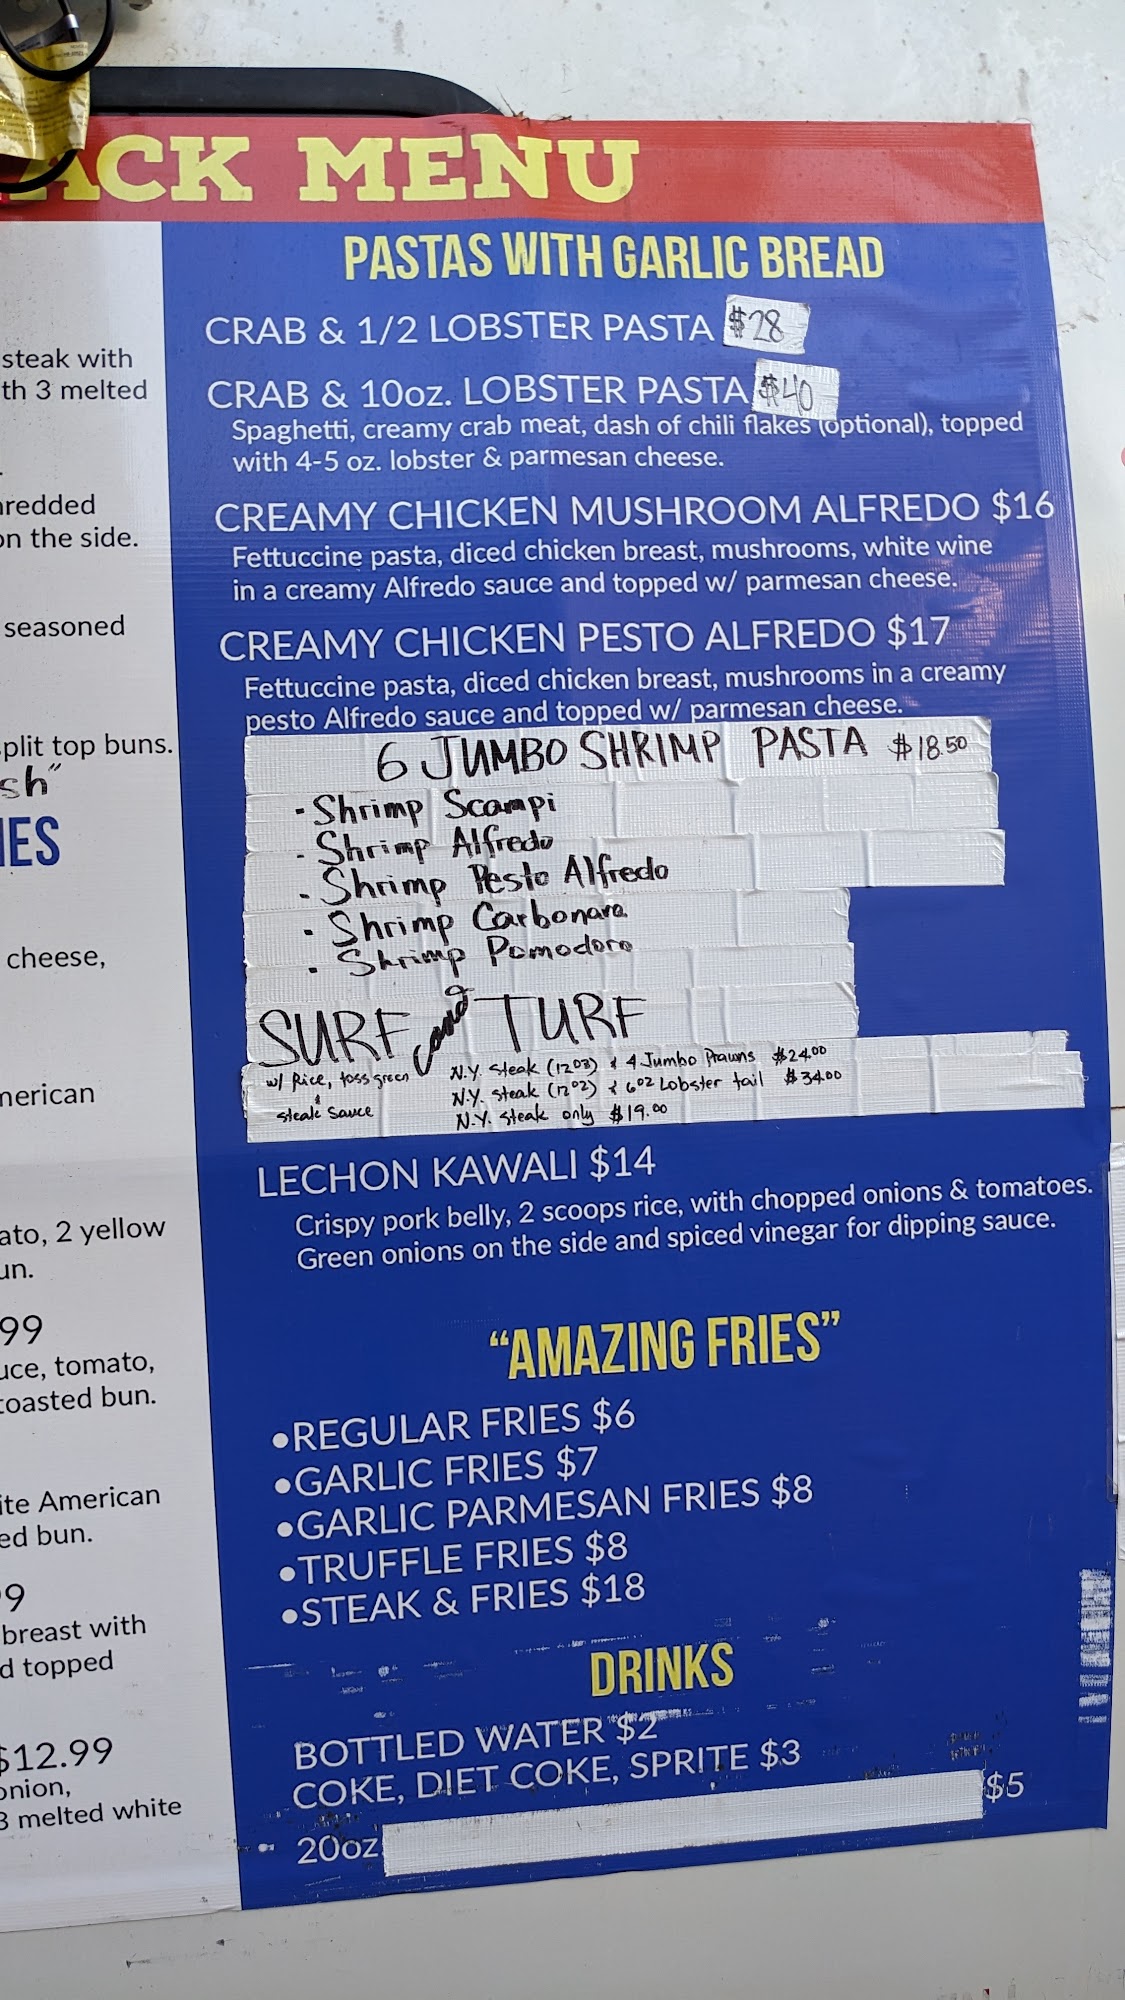 ACK MENU
steak with
th 3 melted
hredded
on the side.
seasoned
split top buns.
sh"
IES
cheese,
merican
ato, 2 yellow
un.
99
uce, tomato,
toasted bun.
ite American
ed bun.
9
breast with
d topped
$12.99
onion,
3 melted white
PASTAS WITH GARLIC BREAD
CRAB & 1/2 LOBSTER PASTA $28
CRAB & 10oz. LOBSTER PASTA $40
Spaghetti, creamy crab meat, dash of chili flakes (optional), topped
with 4-5 oz. lobster & parmesan cheese.
CREAMY CHICKEN MUSHROOM ALFREDO $16
Fettuccine pasta, diced chicken breast, mushrooms, white wine
in a creamy Alfredo sauce and topped w/ parmesan cheese.
CREAMY CHICKEN PESTO ALFREDO $17
Fettuccine pasta, diced chicken breast, mushrooms in a creamy
pesto Alfredo sauce and topped w/ parmesan cheese.
6 JUMBO SHRIMP PASTA $18.50
- Shrimp Scampi
- Shrimp Alfredo
- Shrimp Pesto Alfredo
- Shrimp Carbonara
- Shrimp Pomodoro
SURF and TURF
w/ Rice, toss green
& steak sauce
N.Y. steak (12oz) & 4 Jumbo Prawns $24.00
N.Y. steak (12oz) & 6oz Lobster tail $34.00
N.Y. steak only $19.00
LECHON KAWALI $14
Crispy pork belly, 2 scoops rice, with chopped onions & tomatoes.
Green onions on the side and spiced vinegar for dipping sauce.
"AMAZING FRIES"
•REGULAR FRIES $6
•GARLIC FRIES $7
•GARLIC PARMESAN FRIES $8
•TRUFFLE FRIES $8
•STEAK & FRIES $18
DRINKS
BOTTLED WATER $2
COKE, DIET COKE, SPRITE $3
20oz $5